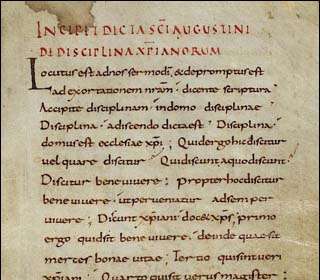 INCIPIT DICTA SCI AUGUSTINI
DE DISCIPLINA XPIANORUM
Locutus est ad nos sermo di, & depromptus est
ad exortationem nram, dicente scriptura
Accipite disciplinam indomo disciplinae
Disciplina adiscendo dicta est. Disciplina
domus est ecclesiae xpi; Quid ergo hic discitur
vel quare discitur. Qui discunt aquo discunt
Discitur bene vivere; Propter hoc discitur
bene vivere. ut perveniatur ad semper
vivere; Discunt xpiani doc& xps; primo
ergo quid sit bene vivere. deinde quae sit
merces bonae vitae; Tertio qui sint veri
xpiani. Quarto quis sit verus magister